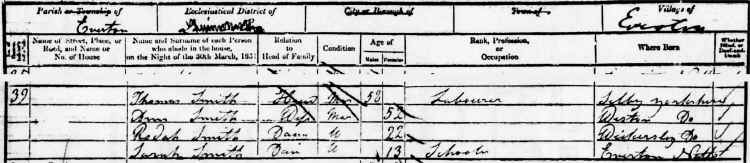 Parish or Township of Ecclesiastical District of City or Borough of Town of Village of
Everton Everton
Name of Street, Place, or Road, and Name or No. of House Name and Surname of each Person who abode in the house, on the Night of the 30th March, 1851 Relation to Head of Family Condition Age of Males Females Rank, Profession, or Occupation Where Born Whether Blind, or Deaf-and-Dumb
39 Thomas Smith Head Mar 58 Labourer Selby Yorkshire
Ann Smith Wife Mar 52 Do
Rodah Smith Daur U 22 Do
Sarah Smith Daur U 13 Scholar Everton Notts